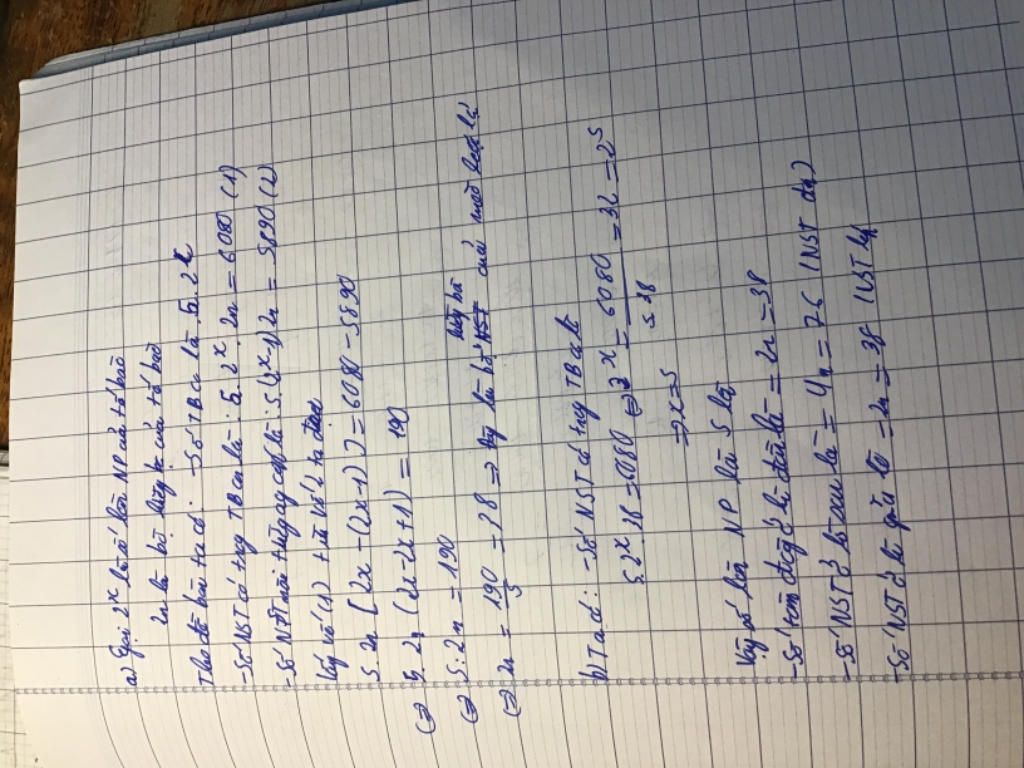 a) Gọi 2^x là số lần NP của tế bào
2n là bộ lưỡng bội của tế bào
Theo đề bài ta có: - Số TB con là 5.2^x
- Số NST có trong TB con là: 5.2^x.2n = 6080 (1)
- Số NST môi trường cung cấp là: 5.(2^x-1)2n = 5890 (2)
Lấy vế (1) trừ vế 2 ta được
5.2n [2x - (2x-1)] = 6080 - 5890
(=) 5.2n (2x-2x+1) = 190
(=) 5.2n = 190
(=) 2n = 190/5 = 38 =) là bộ NST của loài
b) Ta có: - Số NST có trong TB con là
5.2^x.38 = 6080 (=) 2^x = 6080/5.38 = 32 = 2^5
=) x = 5
Vậy số lần NP là 5 lần
- Số tâm động ở kì đầu là = 2n = 38
- Số NST ở kì sau là = 4n = 76 (NST đơn)
- Số NST ở kì giữa là = 2n = 38 (NST kép